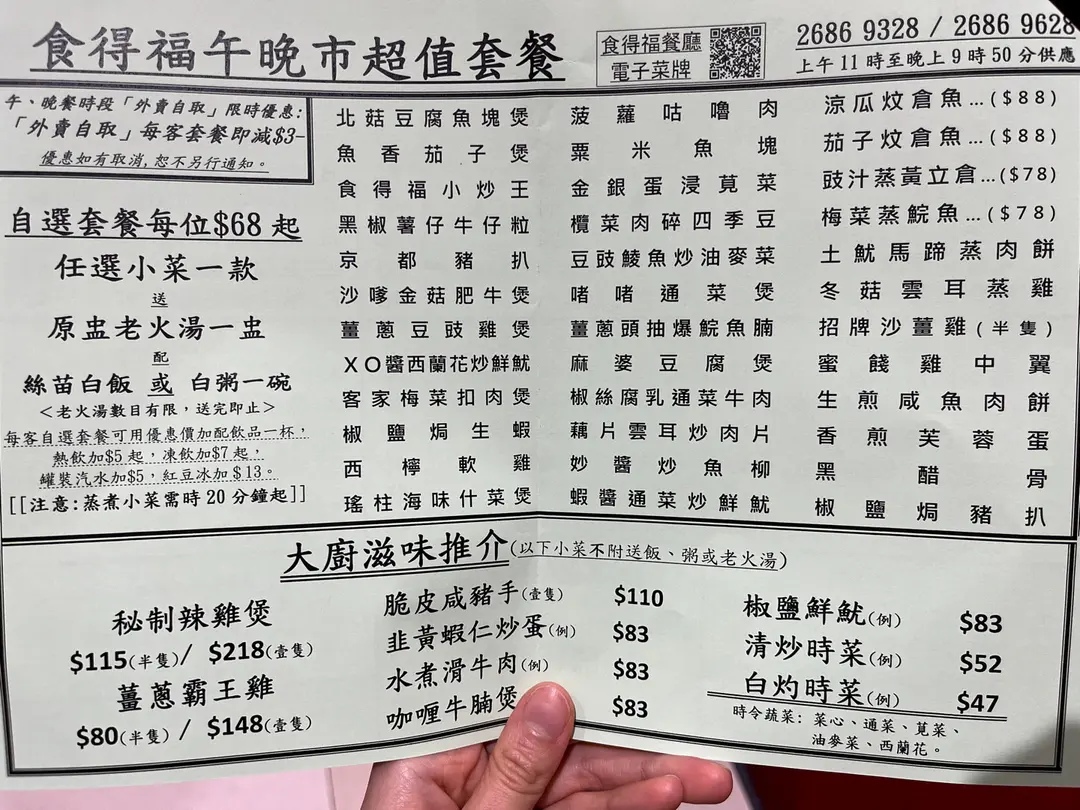 食得福午晚市超值套餐
食得福餐廳
電子菜牌
2686 9328 / 2686 9628
上午11時至晚上9時50分供應
午、晚餐時段「外賣自取」限時優惠:
「外賣自取」每客套餐即減$3-
優惠如有取消,恕不另行通知。
自選套餐每位$68起
任選小菜一款
送
原盅老火湯一盅
配
絲苗白飯 或 白粥一碗
<老火湯數目有限，送完即止>
每客自選套餐可用優惠價加配飲品一杯，
熱飲加$5起，凍飲加$7起，
罐裝汽水加$5，紅豆冰加$13。
[[注意:蒸煮小菜需時20分鐘起]]
北菇豆腐魚塊煲
魚香茄子煲
食得福小炒王
黑椒薯仔牛仔粒
京都豬扒
沙嗲金菇肥牛煲
薑蔥豆豉雞煲
XO醬西蘭花炒鮮魷
客家梅菜扣肉煲
椒鹽焗生蝦
西檸軟雞
瑤柱海味什菜煲
菠蘿咕嚕肉
粟米魚塊
金銀蛋浸莧菜
欖菜肉碎四季豆
豆豉鯪魚炒油麥菜
啫啫通菜煲
薑蔥頭抽爆鯇魚腩
麻婆豆腐煲
椒絲腐乳通菜牛肉
藕片雲耳炒肉片
妙醬炒魚柳
蝦醬通菜炒鮮魷
涼瓜炆倉魚...($88)
茄子炆倉魚...($88)
豉汁蒸黃立倉...($78)
梅菜蒸鯇魚...($78)
土魷馬蹄蒸肉餅
冬菇雲耳蒸雞
招牌沙薑雞(半隻)
蜜餞雞中翼
生煎咸魚肉餅
香煎芙蓉蛋
黑醋骨
椒鹽焗豬扒
大廚滋味推介(以下小菜不附送飯、粥或老火湯)
秘制辣雞煲
$115(半隻)/ $218(壹隻)
薑蔥霸王雞
$80(半隻) / $148(壹隻)
脆皮咸豬手(壹隻) $110
韭黃蝦仁炒蛋(例) $83
水煮滑牛肉(例) $83
咖喱牛腩煲 $83
椒鹽鮮魷(例) $83
清炒時菜(例) $52
白灼時菜(例) $47
時令蔬菜: 菜心、通菜、莧菜、
油麥菜、西蘭花。